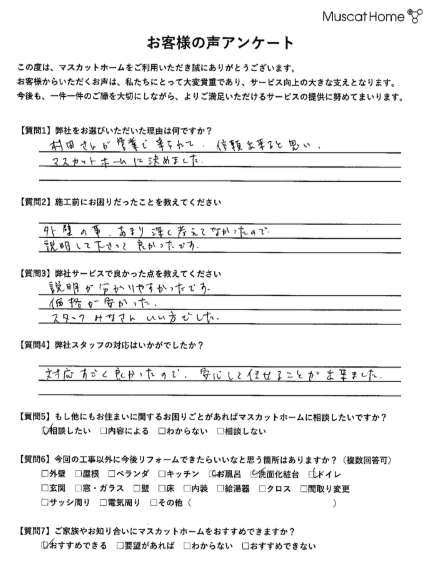 Muscat Home
お客様の声アンケート
この度は、マスカットホームをご利用いただき誠にありがとうございます。
お客様からいただくお声は、私たちにとって大変貴重であり、サービス向上の大きな支えとなります。
今後も、一件一件のご縁を大切にしながら、よりご満足いただけるサービスの提供に努めてまいります。
【質問1】弊社をお選びいただいた理由は何ですか？
村田さんが営業で来られて、信頼出来ると思い、
マスカットホームに決めました。
【質問2】施工前にお困りだったことを教えてください
外壁の事、あまり深く考えてなかったので
説明して下さって良かったです。
【質問3】弊社サービスで良かった点を教えてください
説明が分かりやすかったです。
価格が安かった。
スタッフみなさんいい方でした。
【質問4】弊社スタッフの対応はいかがでしたか？
対応すごく良かったので、安心して任せることが出来ました。
【質問5】もし他にもお住まいに関するお困りごとがあればマスカットホームに相談したいですか？
☑相談したい □内容による □わからない □相談しない
【質問6】今回の工事以外に今後リフォームできたらいいなと思う箇所はありますか？（複数回答可）
□外壁 □屋根 □ベランダ □キッチン ☑お風呂 ☑洗面化粧台 ☑トイレ
□玄関 □窓・ガラス □壁 □床 □内装 □給湯器 □クロス □間取り変更
□サッシ周り □電気周り □その他（ ）
【質問7】ご家族やお知り合いにマスカットホームをおすすめできますか？
☑おすすめできる □要望があれば □わからない □おすすめできない